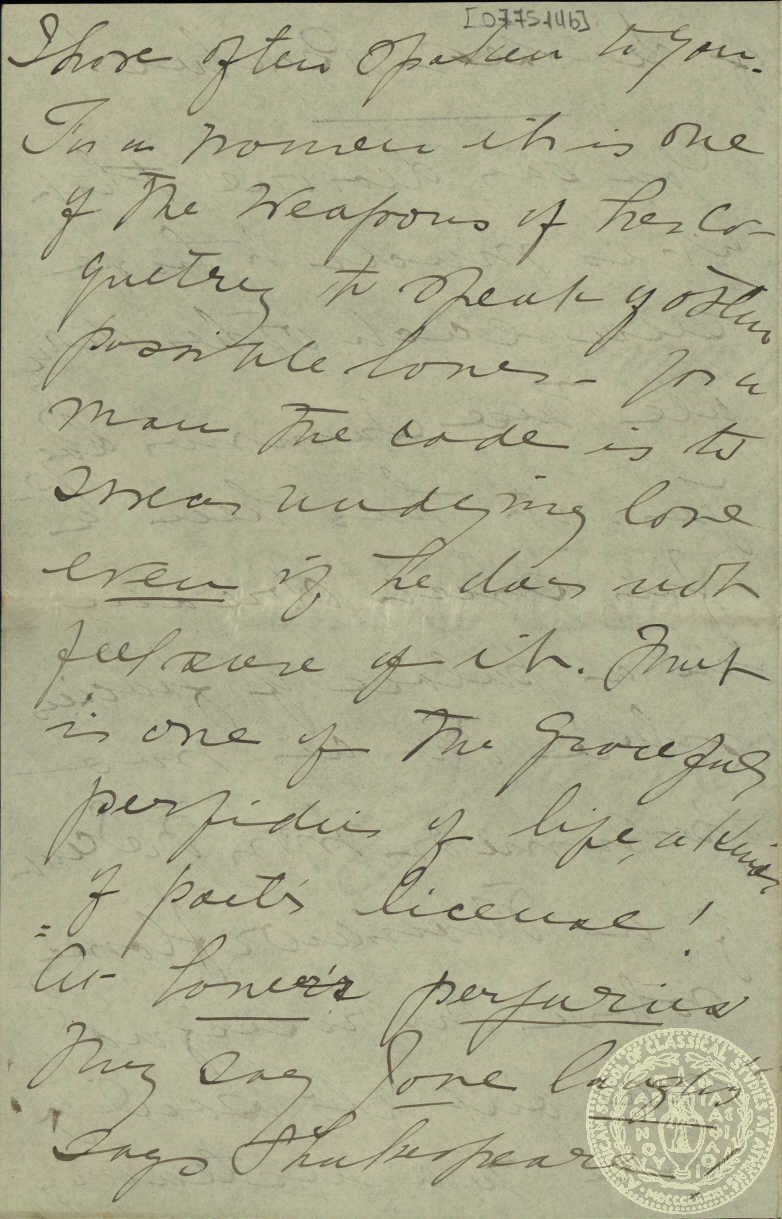 [0775146]
I have often spoken to you.
For a women it is one
of the weapons of her co-
quetry to speak of other
possible loves - for a
man the code is to
swear undying love
even if he does not
feel sure of it. That
is one of the graceful
perfidies of life, a kind
of poet's license!
"At lover's perjuries
They say Jove laughs"
says Shakespeare!
AMERICAN SCHOOL OF CLASSICAL STUDIES AT ATHENS